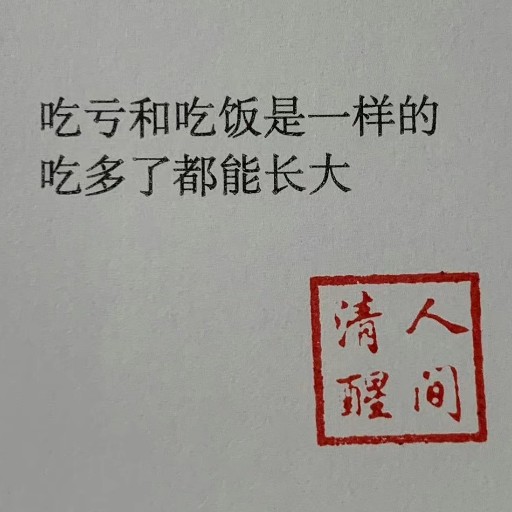 吃亏和吃饭是一样的
吃多了都能长大
人间
清醒